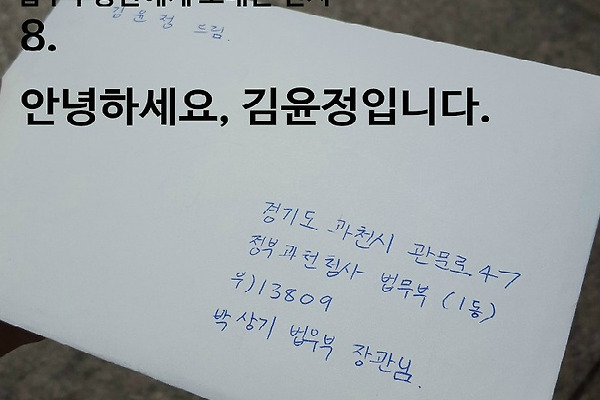 법무부 장관에게 보내는 편지
8.
안녕하세요, 김윤정입니다.
김윤정 드림.
경기도 과천시 관문로 47
정부과천청사 법무부 (1동)
우)13809
박상기 법무부 장관님.